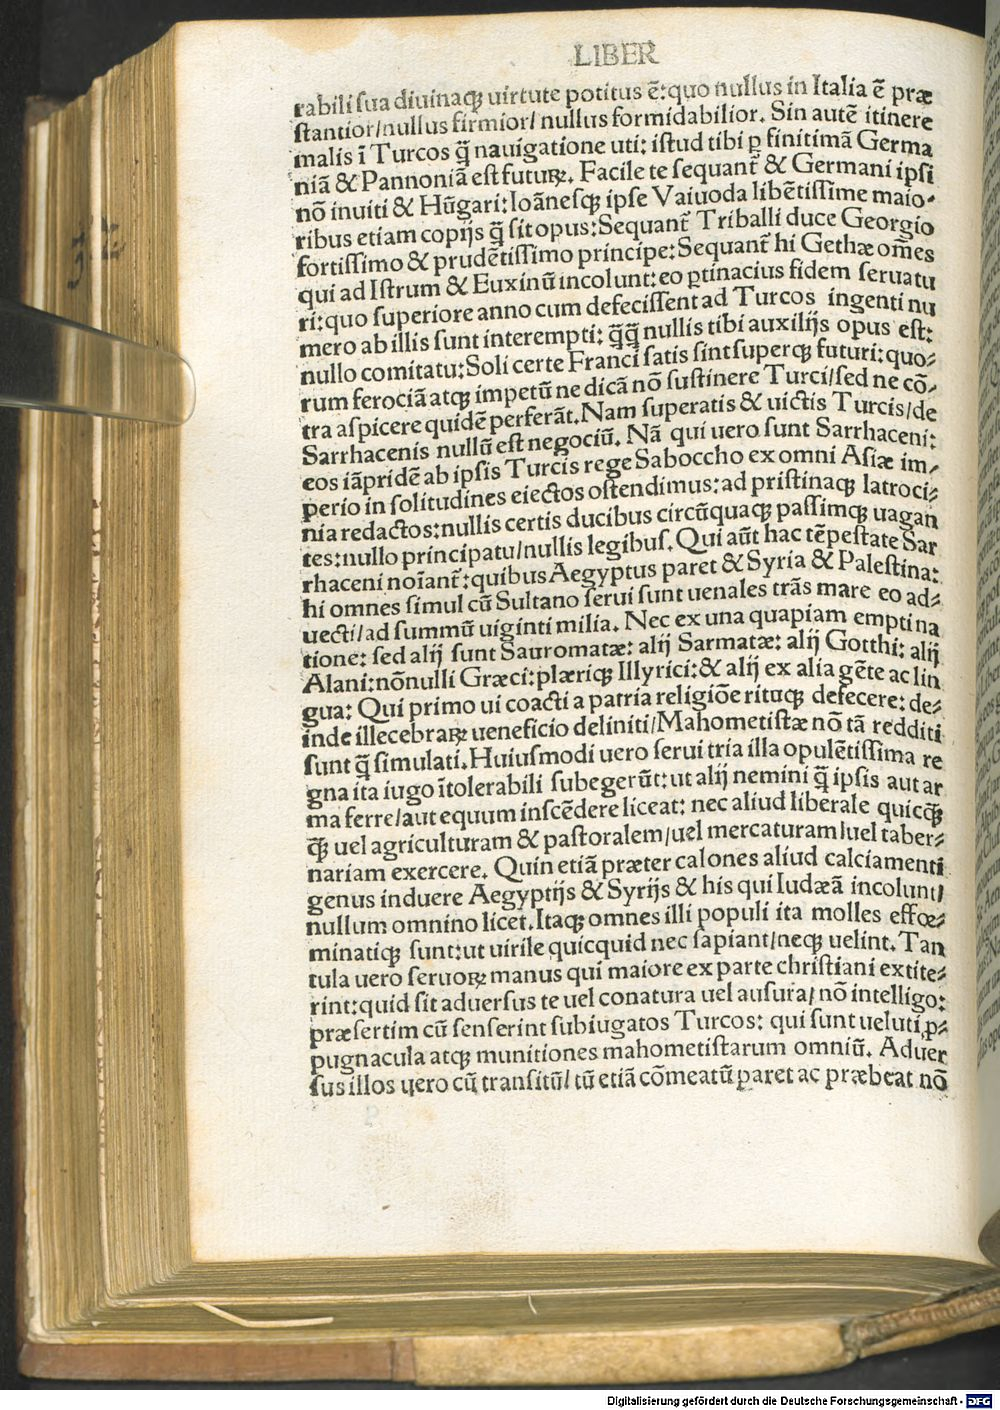 LIBER
rabili sua diuinaqꝫ uirtute potitus ē:quo nullus in Italia ē præ
stantior/nullus firmior/ nullus formidabilior. Sin autē itinere
malis ī Turcos q̄̃ nauigatione uti: istud tibi ꝑ finitimā Germa
niā & Pannoniā est futuꝝ. Facile te sequant̃ & Germani ipsi
nō inuiti & Hūgari:Ioānesqꝫ ipse Vaiuoda libētissime maio-
ribus etiam copijs q̄̃ sit opus:Sequant̃ Triballi duce Georgio
fortissimo & prudētissimo principe:Sequant̃ hi Gethæ om̄es
qui ad Istrum & Euxinū incolunt:eo ꝑtinacius fidem seruatu
ri:quo superiore anno cum defecissent ad Turcos ingenti nu
mero ab illis sunt interempti: q̄̃q̄̃ nullis tibi auxilijs opus est:
nullo comitatu:Soli certe Franci satis sint superqꝫ futuri:quo-
rum ferociā atqꝫ impetū ne dicā nō sustinere Turci/sed ne cō-
tra aspicere quidē perferāt.Nam superatis & uictis Turcis/de
Sarrhacenis nullū est negociū. Nā qui uero sunt Sarrhaceni:
eos iāpridē ab ipsis Turcis rege Saboccho ex omni Asiæ im-
perio in solitudines eiectos ostendimus:ad pristinaqꝫ latroci-
nia redactos:nullis certis ducibus circūquaqꝫ passimqꝫ uagan
tes:nullo principatu/nullis legibus. Qui aūt hac tēpestate Sar
rhaceni noīant̃:quibus Aegyptus paret & Syria & Palestina:
hi omnes simul cū Sultano serui sunt uenales trās mare eo ad-
uecti/ad summū uiginti milia. Nec ex una quapiam empti na
tione: sed alij sunt Sauromatæ: alij Sarmatæ: alij Gotthi: alij
Alani:nōnulli Græci:plæriqꝫ Illyrici:& alij ex alia gēte ac lin
gua: Qui primo ui coacti a patria religiōe rituqꝫ defecere: de-
inde illecebraꝝ ueneficio deliniti/Mahometistæ nō tā redditi
sunt q̄̃ simulati.Huiusmodi uero serui tria illa opulētissima re
gna ita iugo ītolerabili subegerūt:ut alij nemini q̄̃ ipsis aut ar
ma ferre/aut equum inscēdere liceat: nec aliud liberale quicq̄̃
q̄̃ uel agriculturam & pastoralem/uel mercaturam/uel taber-
nariam exercere. Quin etiā præter calones aliud calciamenti
genus induere Aegyptijs & Syrijs & his qui Iudæā incolunt/
nullum omnino licet.Itaqꝫ omnes illi populi ita molles effœ-
minatiqꝫ sunt:ut uirile quicquid nec sapiant/neqꝫ uelint.Tan
tula uero seruoꝝ manus qui maiore ex parte christiani extite-
rint:quid sit aduersus te uel conatura uel ausura/ nō intelligo:
præsertim cū senserint subiugatos Turcos: qui sunt ueluti ꝓ-
pugnacula atqꝫ munitiones mahometistarum omniū. Aduer
sus illos uero cū transitū/ tū etiā cōmeatū paret ac præbeat nō
Digitalisierung gefördert durch die Deutsche Forschungsgemeinschaft - DFG